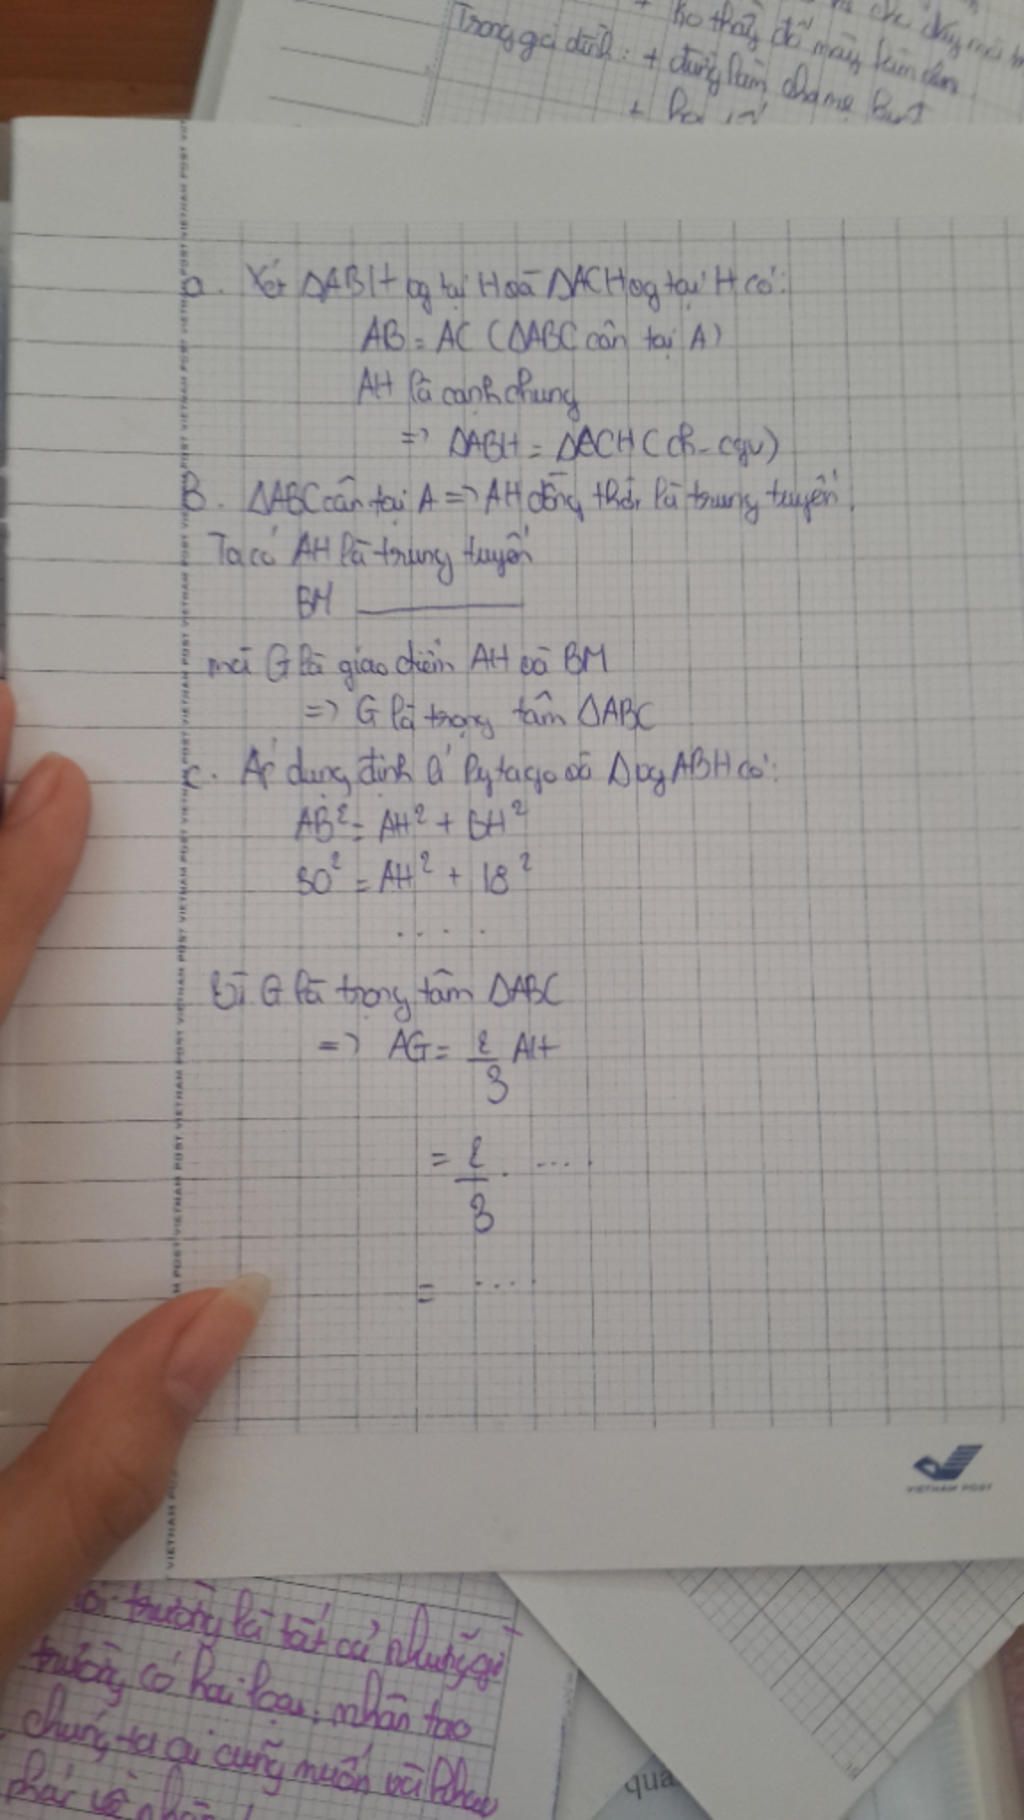 Trong gia đình : + đừng làm cha mẹ
a. Xét ΔABH vg tại H và ΔACH vg tại H có:
AB = AC (ΔABC cân tại A)
AH là cạnh chung
=> ΔABH = ΔACH (ch - cgv)
B. ΔABC cân tại A => AH đồng thời là trung tuyến.
Ta có AH là trung tuyến
BM ________
mà G là giao điểm AH và BM
=> G là trọng tâm ΔABC
c. Áp dụng định lí Pytago vô Δvg ABH có:
AB² = AH² + BH²
30² = AH² + 18²
. . . .
Vì G là trọng tâm ΔABC
=> AG = 2/3 AH
= 2/3 . ....
= ....
VIETNAM POST
trường là tất cả những gì
trường có hai loại: nhân tạo
chúng ta ai cũng muốn
qua